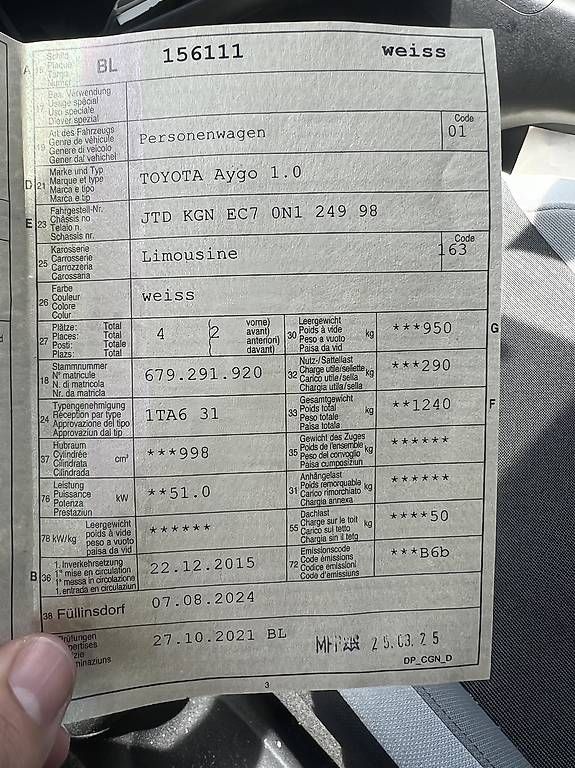 A 15 Schild Plaque Targa Numer BL 156111 weiss
17 Bes. Verwendung
Usage spécial
Uso speciale
Diever spezial
19 Art des Fahrzeugs
Genre de véhicule
Genere di veicolo
Gener dal vehichel
Personenwagen
Code
01
D 21 Marke und Typ
Marque et type
Marca e tipo
Marca e tip
TOYOTA Aygo 1.0
E 23 Fahrgestell-Nr.
Châssis no
Telaio n.
Schassis nr.
JTD KGN EC7 0N1 249 98
25 Karosserie
Carrosserie
Carrozzeria
Carossaria
Limousine
Code
163
26 Farbe
Couleur
Colore
Colur
weiss
27 Plätze: Total
Places: Total
Posti: Totale
Plazs: Total
4
2
vorne)
avant)
anteriori)
davant)
30 Leergewicht
Poids à vide
Peso a vuoto
Paisa da vid
kg
***950
G
18 Stammnummer
N° matricule
N. di matricola
Nr. da matricla
679.291.920
32 Nutz-/Sattellast
Charge utile/sellette
Carico utile/sella
Chargia utila/sella
kg
***290
24 Typengenehmigung
Réception par type
Approvazione del tipo
Approvaziun dal tip
1TA6 31
33 Gesamtgewicht
Poids total
Peso totale
Paisa totala
kg
**1240
F
37 Hubraum
Cylindrée
Cilindrata
Cilindrada
cm³
***998
35 Gewicht des Zuges
Poids de l'ensemble
Peso del convoglio
Paisa cumposiziun
kg
******
76 Leistung
Puissance
Potenza
Prestaziun
kW
**51.0
31 Anhängelast
Poids remorquable
Carico rimorchiato
Chargia annexa
kg
******
78 kW/kg
Leergewicht
poids à vide
peso a vuoto
paisa da vid
******
55 Dachlast
Charge sur le toit
Carico sul tetto
Chargia sin il tetg
kg
****50
B 36 1. Inverkehrsetzung
1re mise en circulation
1a messa in circolazione
1. entrada en circulaziun
22.12.2015
72 Emissionscode
Code émissions
Codice emissioni
Code d'emissiuns
***B6b
38 Füllinsdorf 07.08.2024
Prüfungen
27.10.2021 BL
25.03.25
DP_CGN_D
3